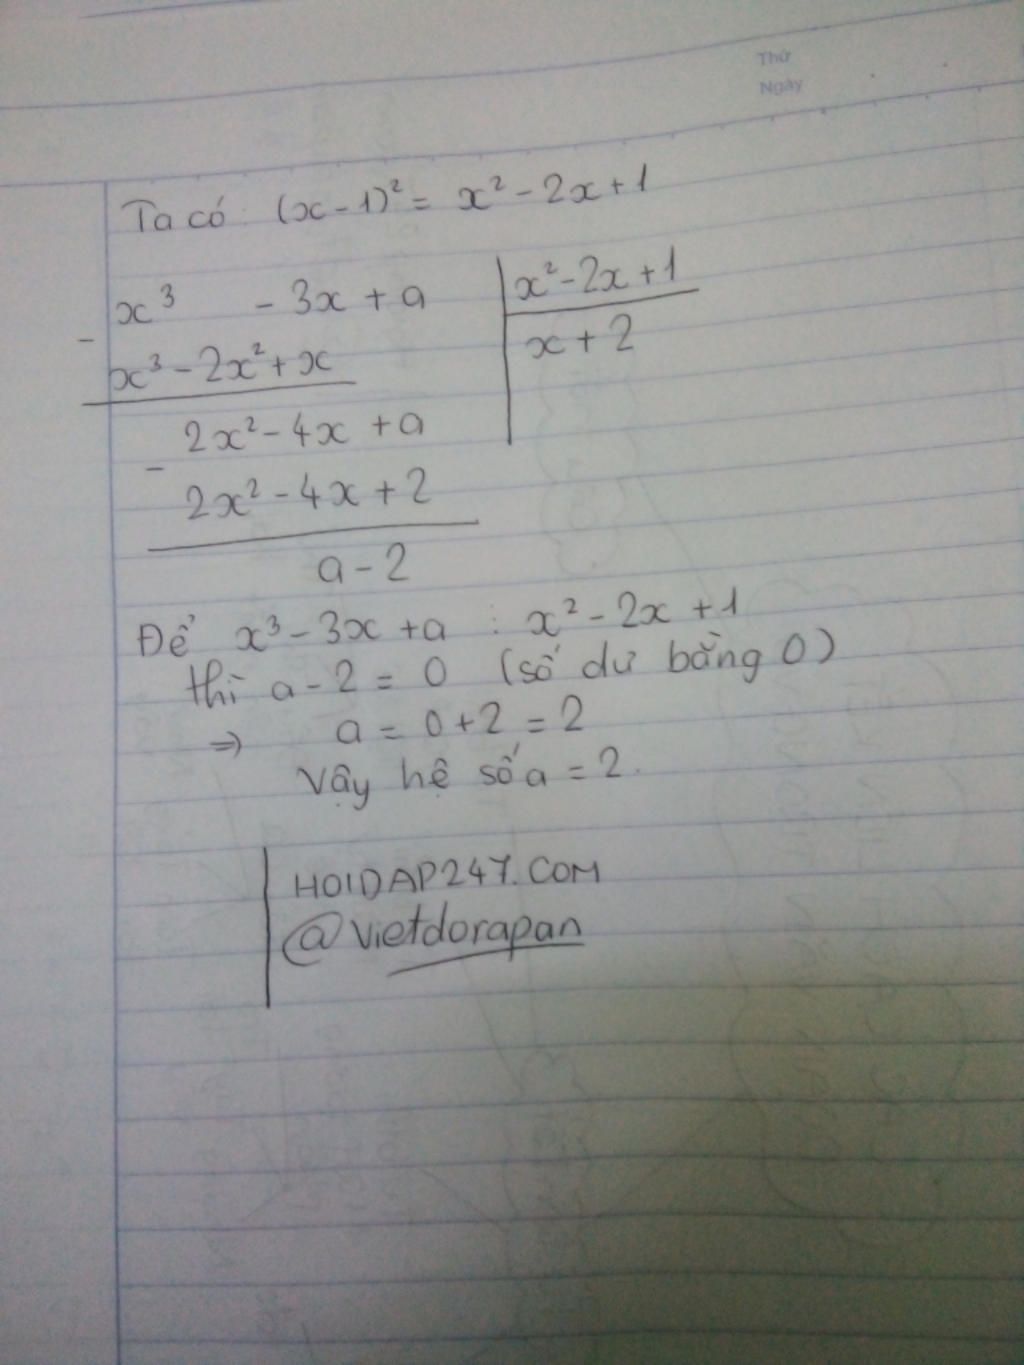 Thứ
Ngày
Ta có: (x-1)² = x² - 2x + 1
x³ - 3x + a | x² - 2x + 1
-
x³ - 2x² + x | x + 2
2x² - 4x + a
-
2x² - 4x + 2
a - 2
Để x³ - 3x + a : x² - 2x + 1
thì a - 2 = 0 (số dư bằng 0)
⇒ a = 0 + 2 = 2
Vậy hệ số a = 2.
HOIDAP247.COM
@Vietdorapan